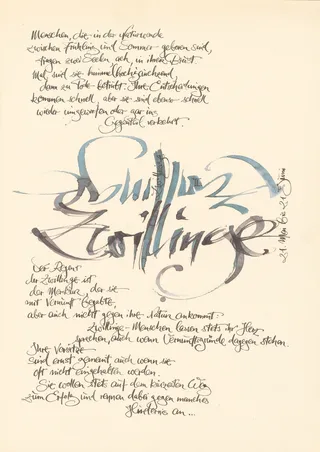 Menschen, die in der Naturwende
zwischen Frühling und Sommer geboren sind,
tragen zwei Seelen ach, in ihrer Brust
Mal sind sie himmelhochjauchzend,
dann zu Tode betrübt. Ihre Entscheidungen
kommen schnell, aber sie sind ebenso schnell
wieder umgeworfen oder gar ins
Gegenteil verkehrt.
Zwillinge
21. Mai bis 21. Juni
Der Regent
der Zwillinge ist
der Merkur, der sie
mit Vernunft begabte,
aber auch nicht gegen ihre Natur ankommt:
Zwillinge-Menschen lassen stets ihr Herz
sprechen, auch wenn Vernunftgründe dagegen stehen.
Ihre Vorsätze
sind ernst gemeint auch wenn sie
oft nicht eingehalten werden.
Sie wollen stets auf dem kürzesten Weg
zum Erfolg und rennen dabei gegen manches
Hindernis an ...